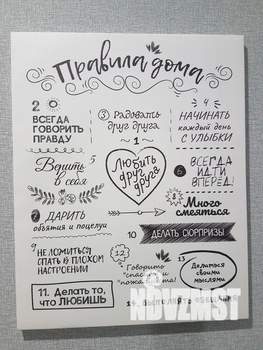 Правила дома
2
ВСЕГДА
ГОВОРИТЬ
ПРАВДУ
3 Радовать
друг друга
4
НАЧИНАТЬ
каждый день
С УЛЫБКИ
1
Любить
друг
друга
5
Верить
в себя
6 ВСЕГДА
ИДТИ
ВПЕРЕД!
7 ДАРИТЬ
объятия и поцелуи
8
Много
смеяться
9
НЕ ЛОЖИТЬСЯ
СПАТЬ В ПЛОХОМ
НАСТРОЕНИИ
10 ДЕЛАТЬ СЮРПРИЗЫ
11. Делать то,
что ЛЮБИШЬ
12
Говорить
"спасибо" и
"пожалуйста"
13
Делиться
своими
мыслями
ВЫПОЛНЯТЬ